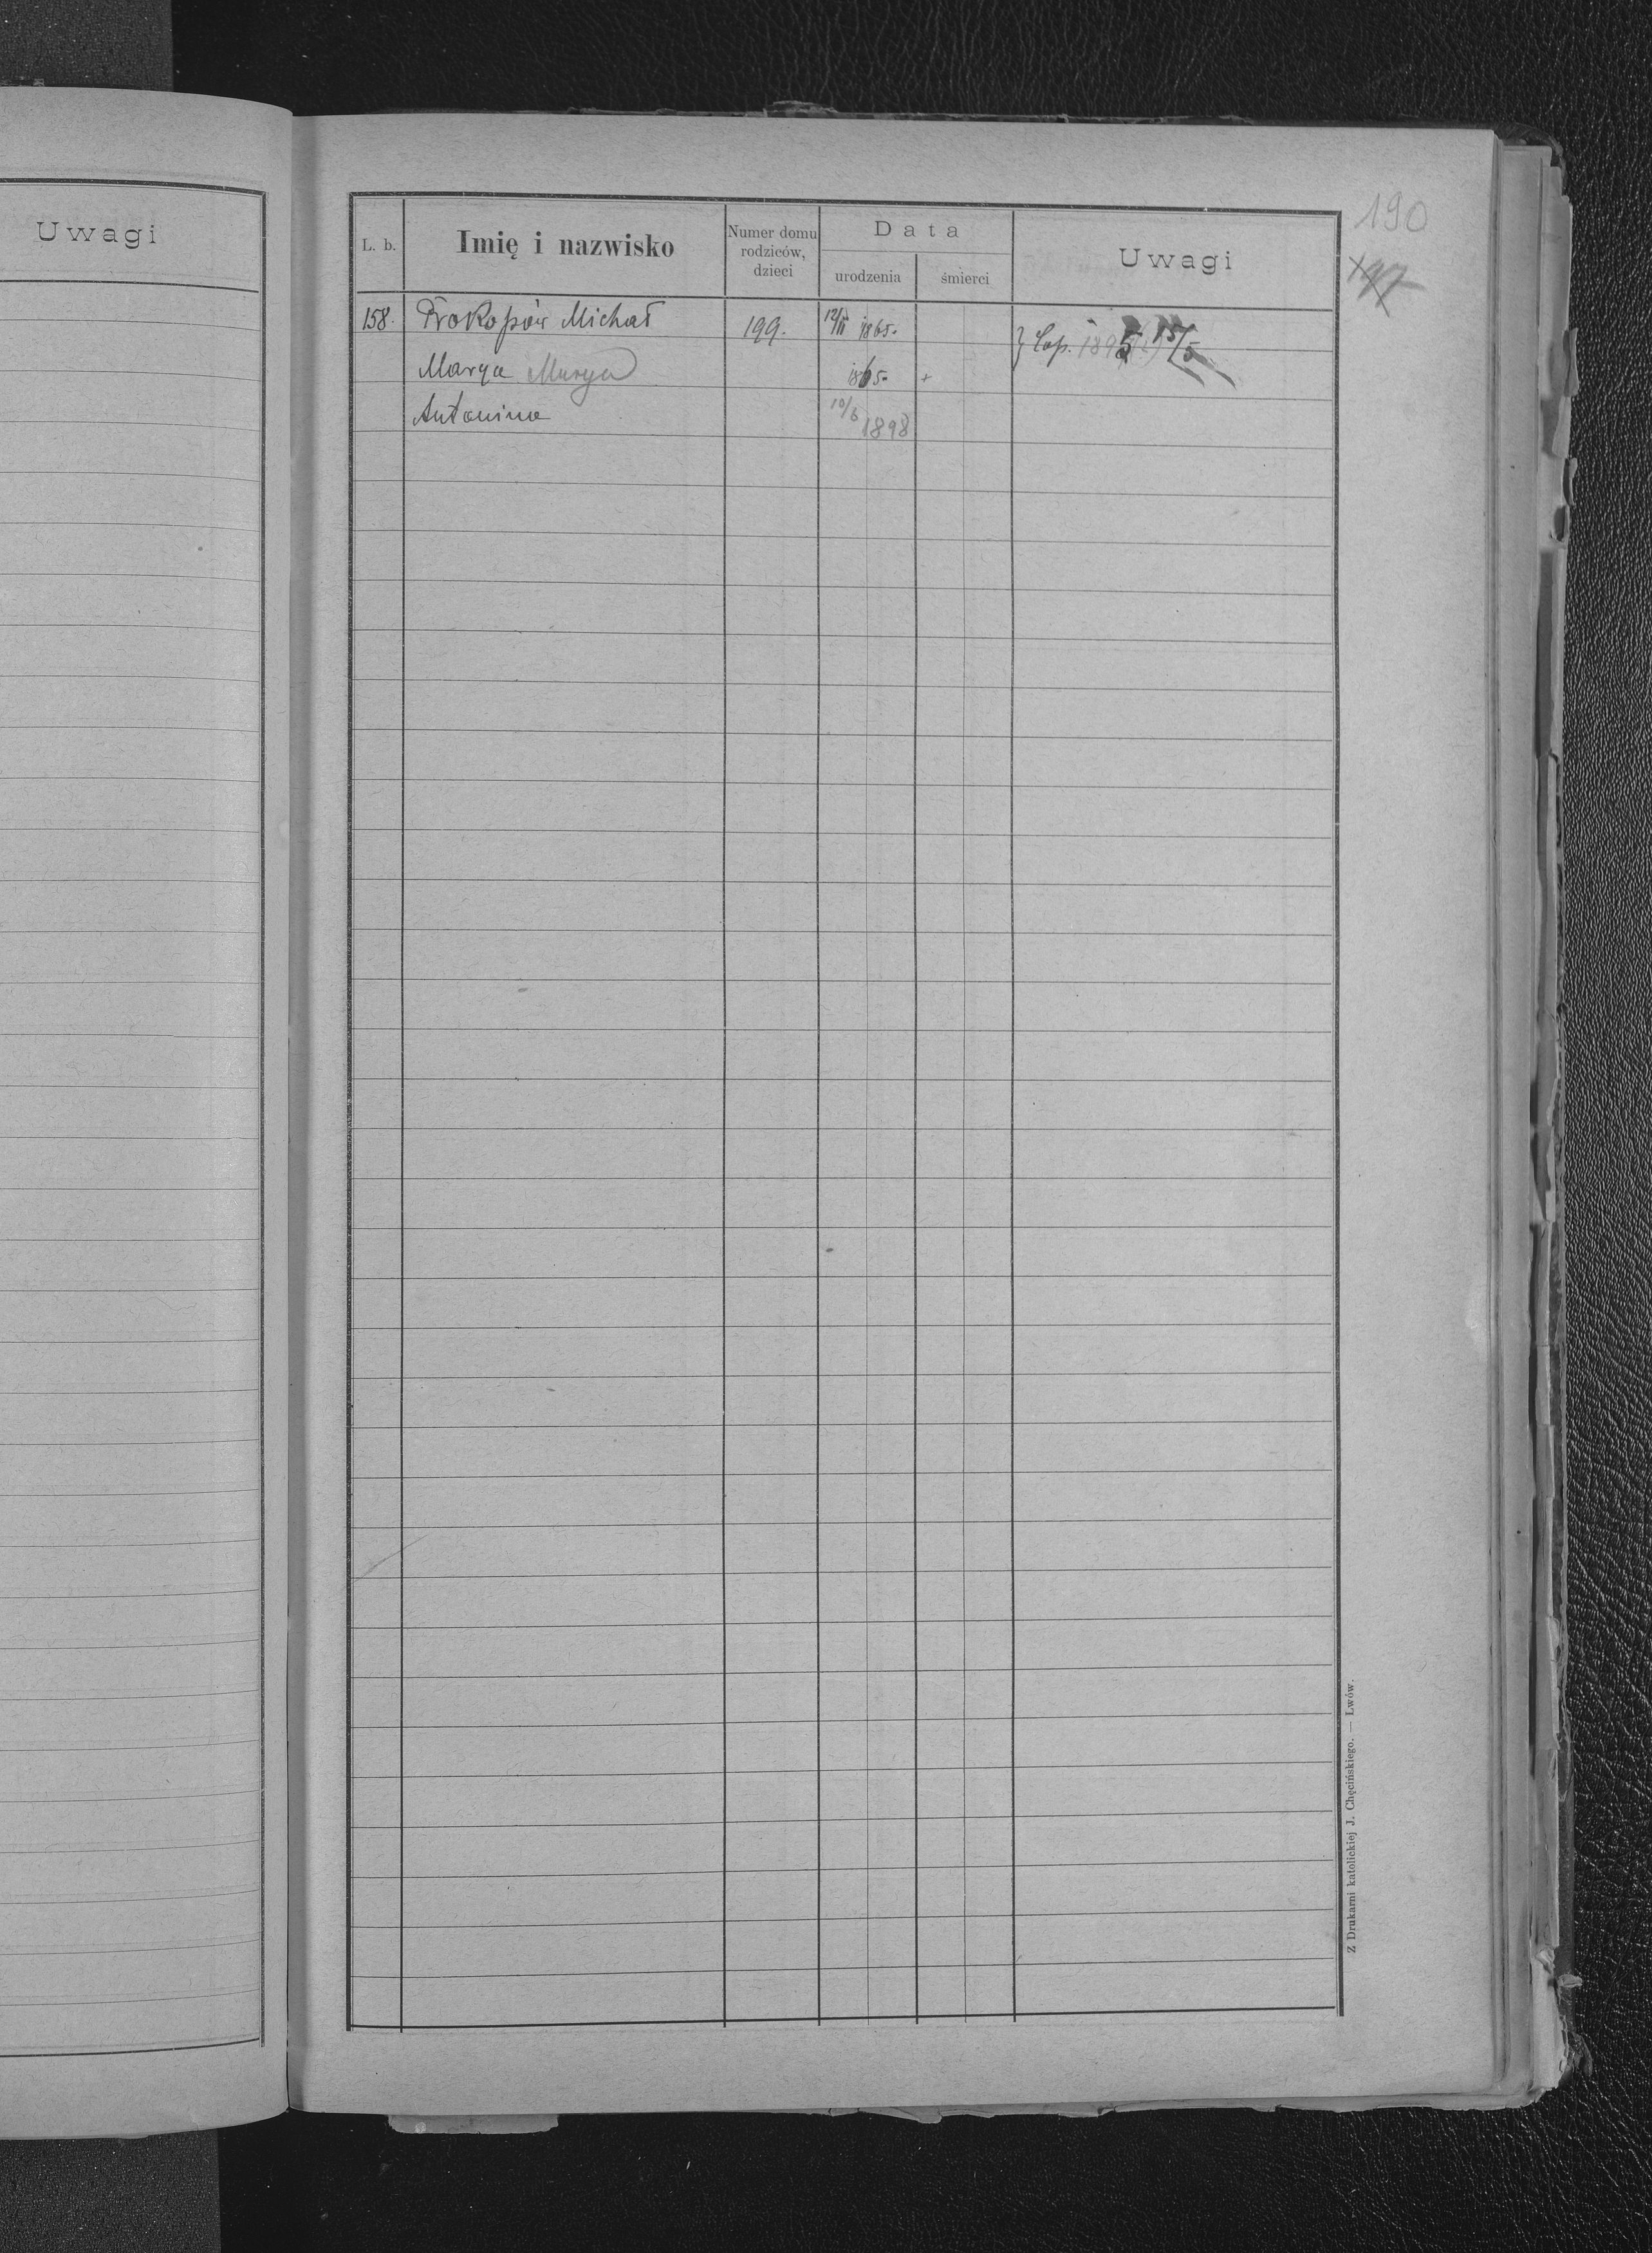 Uwagi
190
L. b.
Imię i nazwisko
Numer domu
rodziców,
dzieci
Data
urodzenia
śmierci
Uwagi
158. Prokopów Michał 199. 12/II 1865. } Cop. 1895 15/5
Marya Marya 1865. +
Antonina 10/6 1898
Z Drukarni katolickiej J. Chęcińskiego. — Lwów.